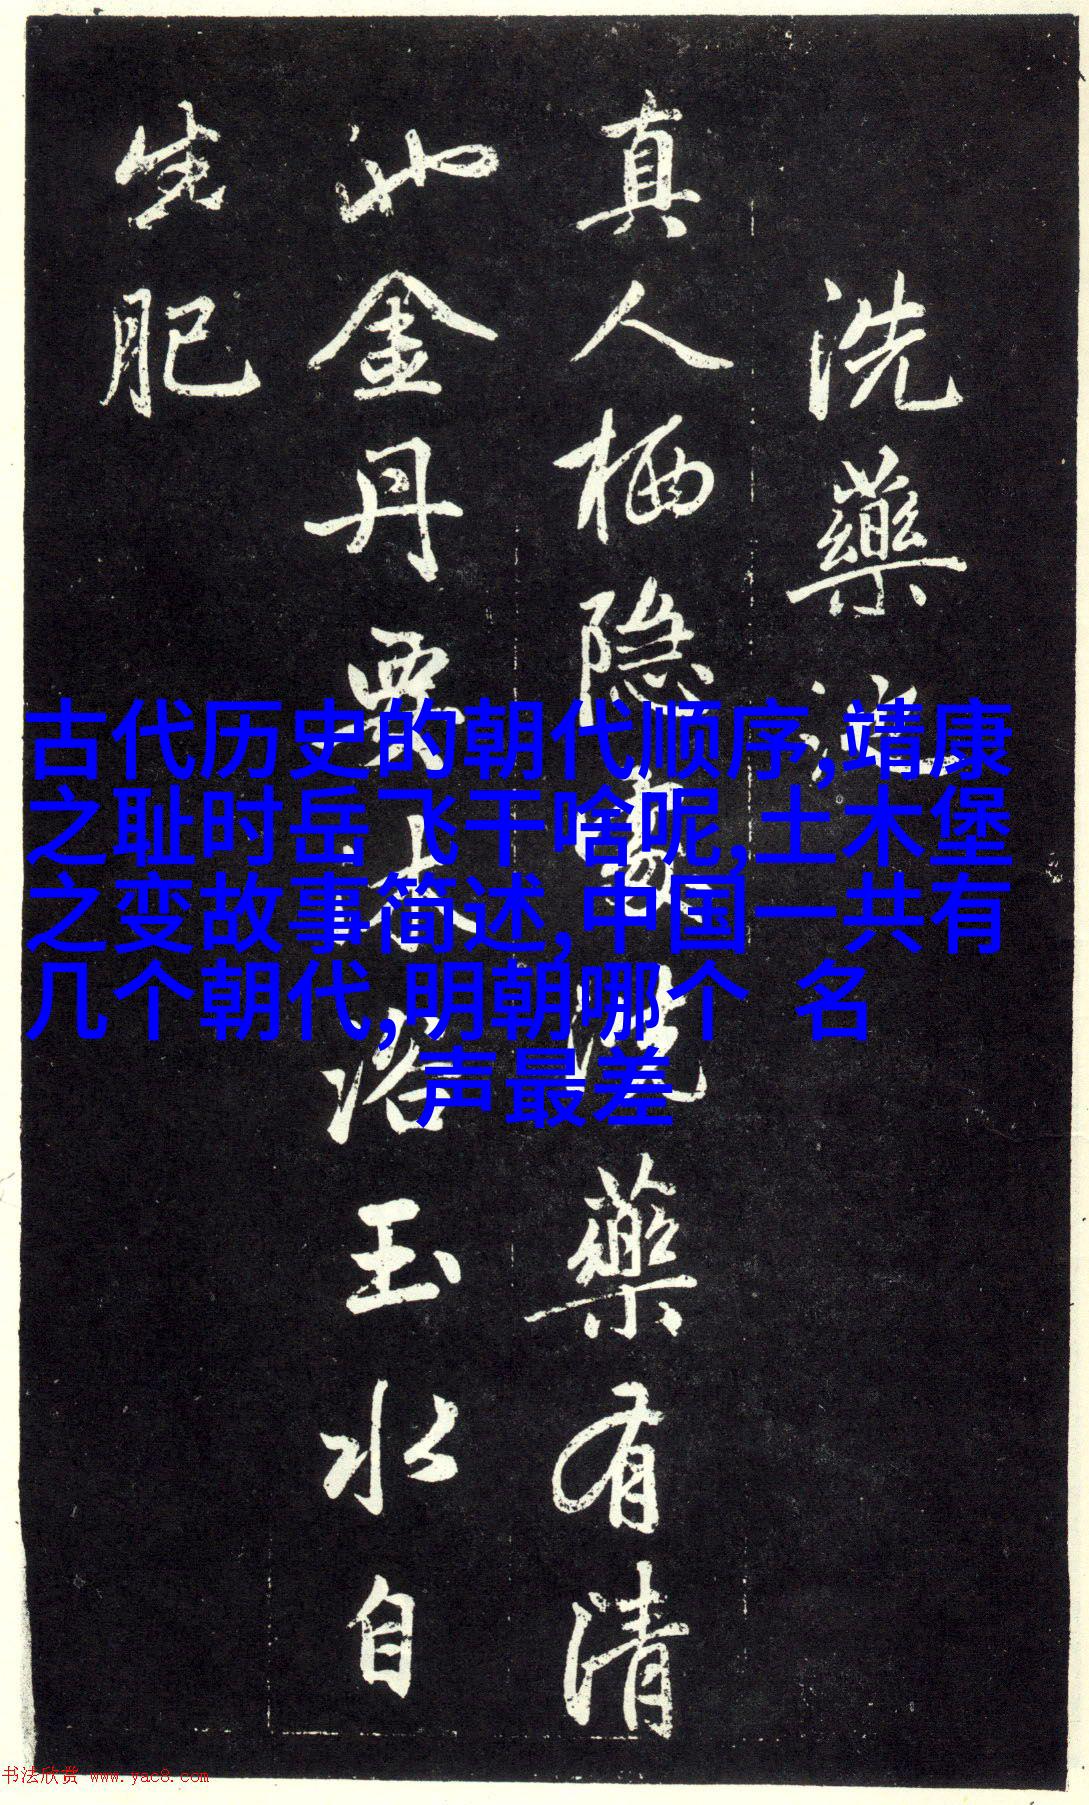 洗藥池
真人栖隐洗藥有清
池金丹要浴玉水自
生肥
古代历史的朝代顺序,靖康
之耻时岳飞干啥呢,土木堡
之变故事简述,中国一共有
几个朝代,明朝哪个 名
声最差
书法欣赏 www.yac8.com